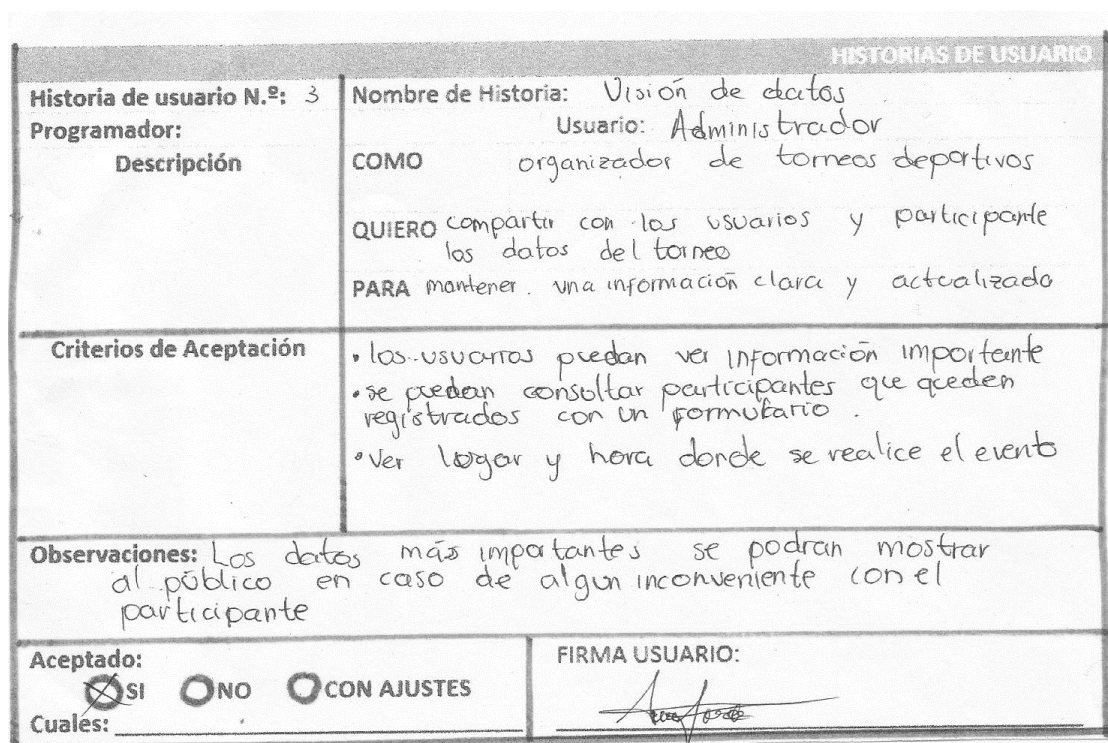 HISTORIAS DE USUARIO
Historia de usuario N.º: 3
Nombre de Historia: Visión de datos
Programador:
Usuario: Administrador
Descripción
COMO organizador de torneos deportivos
QUIERO compartir con los usuarios y participante
los datos del torneo
PARA mantener una información clara y actualizada
Criterios de Aceptación
• los usuarios puedan ver información importante
• se puedan consultar participantes que queden
registrados con un formulario.
• Ver lugar y hora donde se realice el evento
Observaciones: Los datos más importantes se podran mostrar
al público en caso de algun inconveniente con el
participante
Aceptado:
SI NO CON AJUSTES
Cuales:
FIRMA USUARIO: